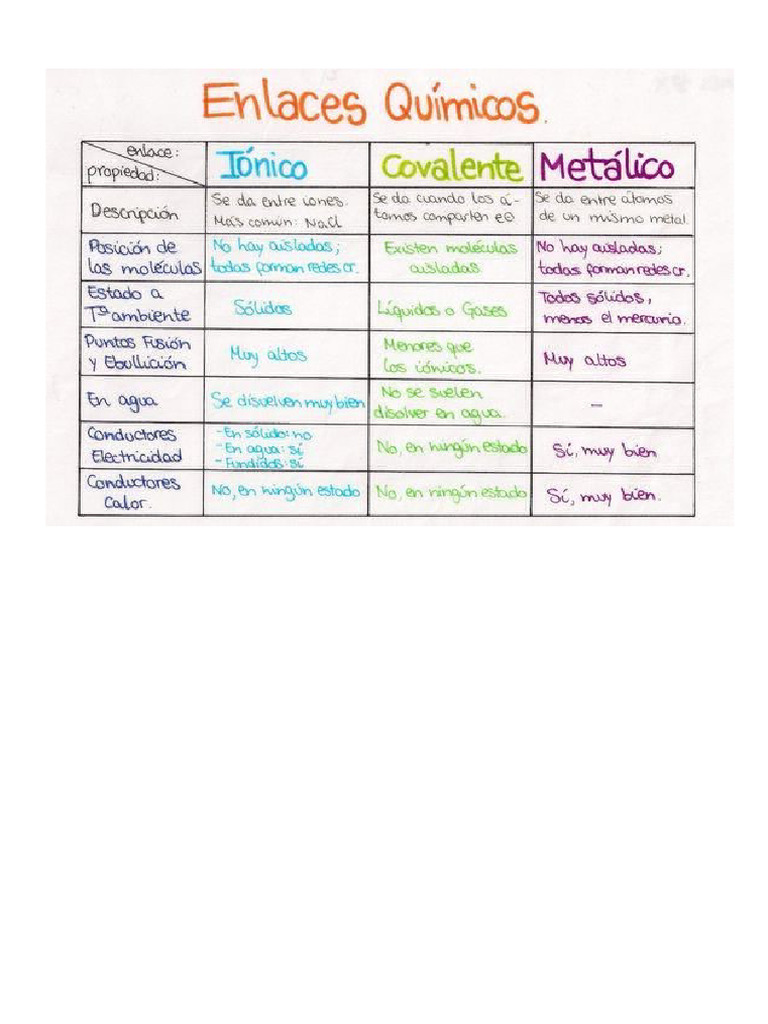 Enlaces Químicos.
enlace:
propiedad:
Iónico
Covalente
Metálico
Descripción
Se da entre iones.
Más común: NaCl
Se da cuando los á-
tomos comparten ee
Se da entre átomos
de un mismo metal.
Posición de
las moléculas
No hay aisladas;
todas forman redes cr.
Existen moléculas
aisladas
No hay aisladas;
todas forman redes cr.
Estado a
Tª ambiente
Sólidos
Líquidos o Gases
Todos sólidos,
menos el mercurio.
Puntos Fusión
y Ebullición
Muy altos
Menores que
los iónicos.
Muy altos
En agua
Se disuelven muy bien
No se suelen
disolver en agua.
-
Conductores
Electricidad
- En sólido: no
- En agua: sí
- Fundidos: sí
No, en ningún estado
Sí, muy bien
Conductores
Calor.
No, en ningún estado
No, en ningún estado
Sí, muy bien.